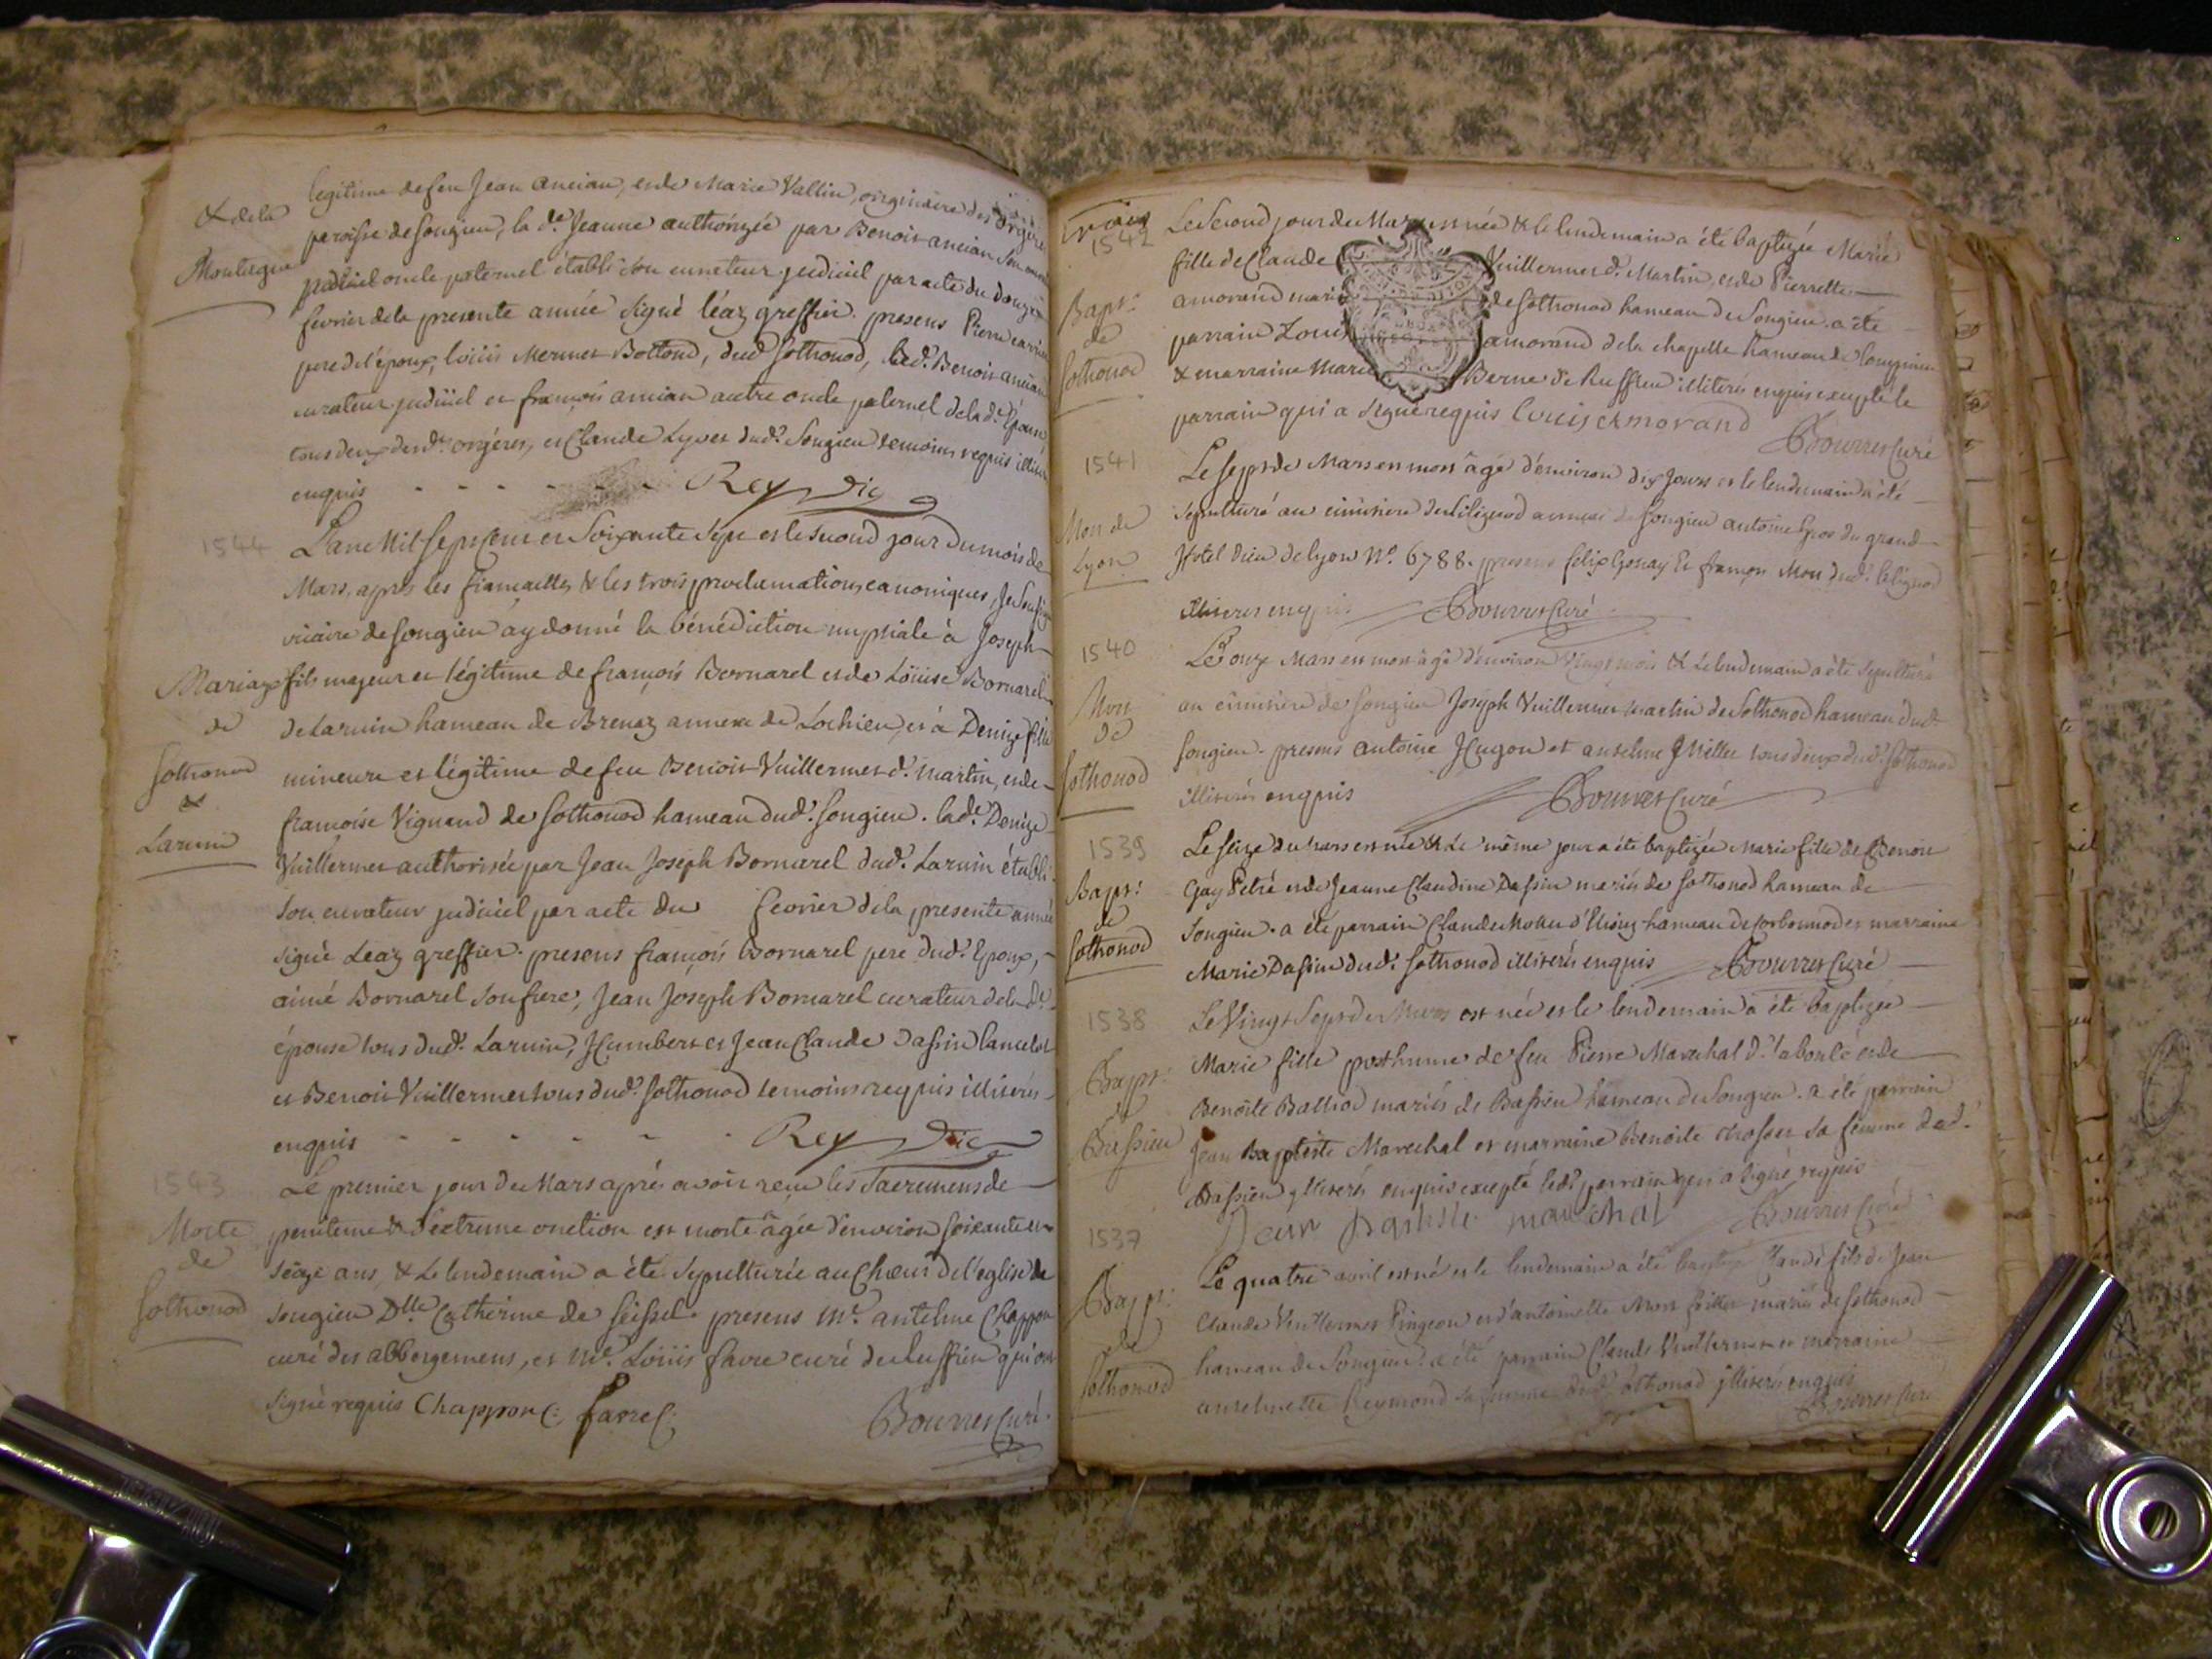 & de la
Montagne
legitime de feu Jean ancian, et de Marie Vallin, originaire des orgeres
paroisse de songieu, la de. Jeanne authorizée par Benoit ancian son
oncle paternel établi son curateur judiciel par acte du douze
fevrier de la presente année signé léaz greffier. presens Pierre
pere de l'époux, loüis Mermet Bottond, dud. sothonod, led. Benoit ancian
curateur judiciel et françois ancian autre oncle paternel de la de. Epouse
tous deux desd. orgères, et Claude Lyvet dud. Songieu temoins requis illiterés
enquis - - - - - - Rey vic
1544
L'an Mil sept Cent et Soixante Sept et le second jour du mois de
Mars, après les fiançailles & les trois proclamations canoniques, Je soussigné
vicaire de songieu ay donné la bénédiction nuptiale à Joseph
Mariage
de
sothonod
&
Larnin
fils majeur et légitime de françois Bornarel et de Loüise Bornarel
de Larnin hameau de Brenaz annexe de Lochieu, et à Denize fille
mineure et légitime de feu Benoit Vuillermet d. Martin, et de
françoise Vignand de sothonod hameau dud. songieu. lad. Denize
Vuillermet authorisée par Jean Joseph Bornarel dud. Larnin établi
son curateur judiciel par acte du fevrier de la presente année
signé Leaz greffier. presens françois Bornarel pere dud. Epoux,
aimé Bornarel son frere, Jean Joseph Bornarel curateur de la de.
épouse tous dud. Larnin, Humbert et Jean Claude Dassin lancelot
et Benoit Vuillermet tous dud. sothonod temoins requis illiterés
enquis - - - - - - Rey Vic
1543
Morte
de
sothonod
Le premier jour de Mars aprés avoir reçu les Sacremens de
penitence & d'extreme onction est morte âgée d'environ soixante et
séize ans, & le lendemain a été sépulturée au Chœur de l'eglise de
songieu Dlle Catherine de seissel. presens mr. antelme Chappon
curé des abbergemens, et mr. Loüis favre curé de Ruffieu qui ont
signé requis Chappon C: favre C:
Bourret Curé.
1542
Bapt:
de
sothonod
Le Second jour de Mars est née & le lendemain a été baptizée Marie
fille de Claude Vuillermet d. Martin et de Pierrette
amorand mariés de sothonod hameau de Songieu. a été
parrain Louis amorand de la chapelle hameau de
& marraine Marie Berne de Ruffieu illiterés enquis excepté le
parrain qui a signé requis louis Amorand
Bourret Curé
1541
Mort de
Lyon
Le sept de Mars est mort âgé d'environ dix jours et le lendemain a été
sépulturé au cimitiere de lilignod annexe de songieu antoine Gros du grand
Hotel dieu de lyon No. 6788. presens felix Gonay & françois Mon dud. lilignod
illiterés enquis Bourret Curé
1540
Mort
de
sothonod
Le onze Mars est mort âgé d'environ vingt mois & le lendemain a été sépulturé
au cimitière de songieu Joseph Vuillermet Martin de Sothonod hameau dud.
songieu. presens antoine Hugon et antelme Millet tous deux dud. sothonod
illiterés enquis Bourret Curé
1539
Bapt:
de
sothonod
Le seize de Mars est née & le même jour a été baptizée Marie fille de Benoit
Guy Petré et de Jeanne Claudine Dassin mariés de sothonod hameau de
Songieu. a été parrain Claude hameau de et marraine
Marie Dassin dud. sothonod illiterés enquis Bourret Curé
1538
Bapt:
de
Bassieu
Le Vingt Sept de Mars est née et le lendemain a été baptizée
Marie fille posthume de feu Pierre Marechal d. et de
Benoite Balliod mariés de Bassieu hameau de Songieu. a été parrain
Jean Baptiste Marechal et marraine Benoite sa femme dud.
Bassieu illiterés enquis excepté led. parrain qui a signé requis
Jean Baptiste marechal Bourret Curé
1537
Bapt:
de
sothonod
Le quatre avril est né et le lendemain a été baptizé Claude fils de Jean
Claude Vuillermet Pingeon et d'antoinette Mon mariés de sothonod
hameau de Songieu. a été parrain Claude Vuillermet et marraine
Reymond sa femme dud. sothonod illiterés enquis
Bourret Curé